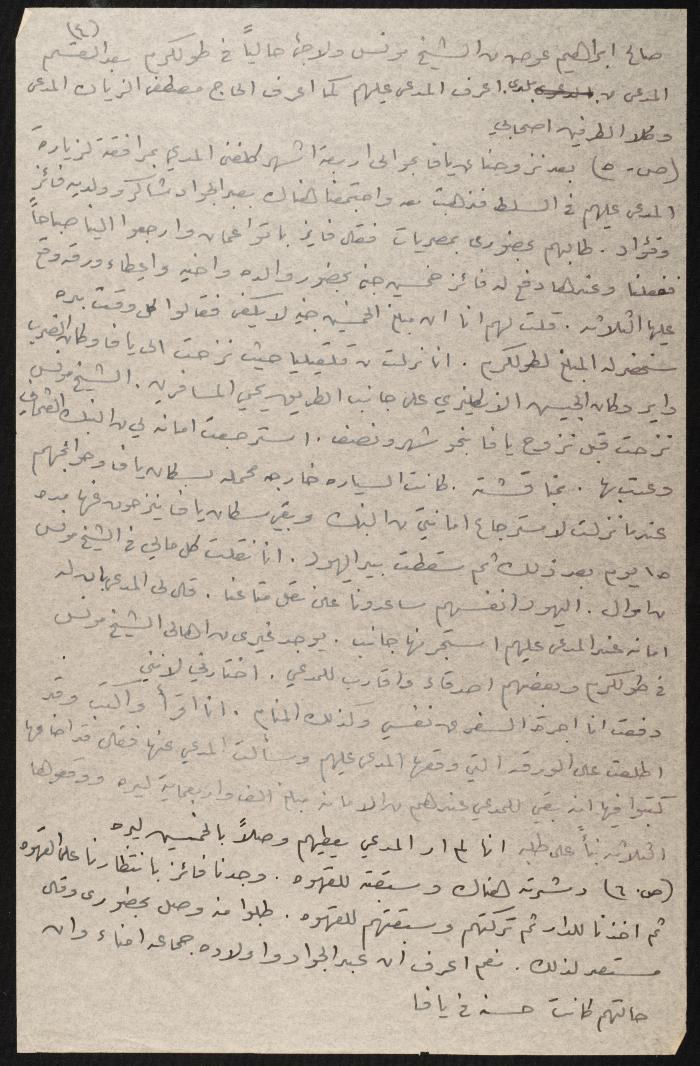 (٤)
صالح ابراهيم عوض من الشيخ مونس ولاجئ حالياً في طولكرم بعد القسم
المدعي بلدي اعرف المدعى عليهم كما اعرف الحاج مصطفى الزيات المدعي
وكلا الطرفين اصحابي
(ص - ٥) بعد نزوحنا من يافا بحوالي اربعة اشهر كلفني المدعي بمرافقته لزيارة
المدعى عليهم في السلط فذهبت معه واجتمعنا هناك بعبد الجواد شاكر وولديه فائز
وفؤاد . طالبهم بحضوري بمصريات فقال فايز باتوا عمان وارجعوا الينا صباحاً
ففعلنا وعندها دفع له فائز خمسين جنيه بحضور والده واخيه واعطاه ورقة وقع
عليها الثلاثه . قلت لهم انا ان مبلغ الخمسين جنيه لا يكفي فقالوا كل وقت بيده
سنحضر له المبلغ لطولكرم . انا نزلت من قلقيليا حيث نزحت الى يافا وكان الضرب
داير وكان الجيش الانكليزي على جانب الطريق يحمي المسافرين . الشيخ مونس
نزحت قبل نزوح يافا بنحو شهر ونصف . استرجعت امانه لي من البنك العثماني
وعتب بها . بمناقشته . كانت السياره خارجه محمله بسكان يافا وحوائجهم
عندما نزلت لاسترجاع امانتي من البنك وبقي سكان يافا ينزحون عنها مده
١٥ يوم بعد ذلك ثم سقطت بيد اليهود . انا نقلت كل مالي في الشيخ مونس
من اموال . اليهود انفسهم ساعدونا على نقل متاعنا . قال لي المدعي بان له
امانه عند المدعى عليهم استجر منها جانب . يوجد غيري من اهالي الشيخ مونس
في طولكرم وبعضهم اصدقاء واقارب للمدعي . اختارني لانني
دفعت انا اجرة السفر عن نفسي وكذلك المنام . انا اقرأ واكتب وقد
اطلعت على الورقه التي وقعها المدعى عليهم وسألت المدعي عنها فقال قد اضاعها
كتبوا فيها انه بقي للمدعي عندهم من الامانه مبلغ الف واربعماية ليره ووقعوها
الثلاثه بناً على طلبه انا لم ار المدعي يعطيهم وصلاً بالخمسين ليره
(ص. ٦) وشربته هناك وسبقته للقهوه . وجدنا فائز بانتظارنا على القهوه
ثم اخذنا للدار ثم تركتهم وسبقتهم للقهوه . طلبوا منه وصل بحضوري وقال
مستعد لذلك . نعم اعرف ان عبد الجواد واولاده جماعه امناء وان
حالتهم كانت حسنه في يافا